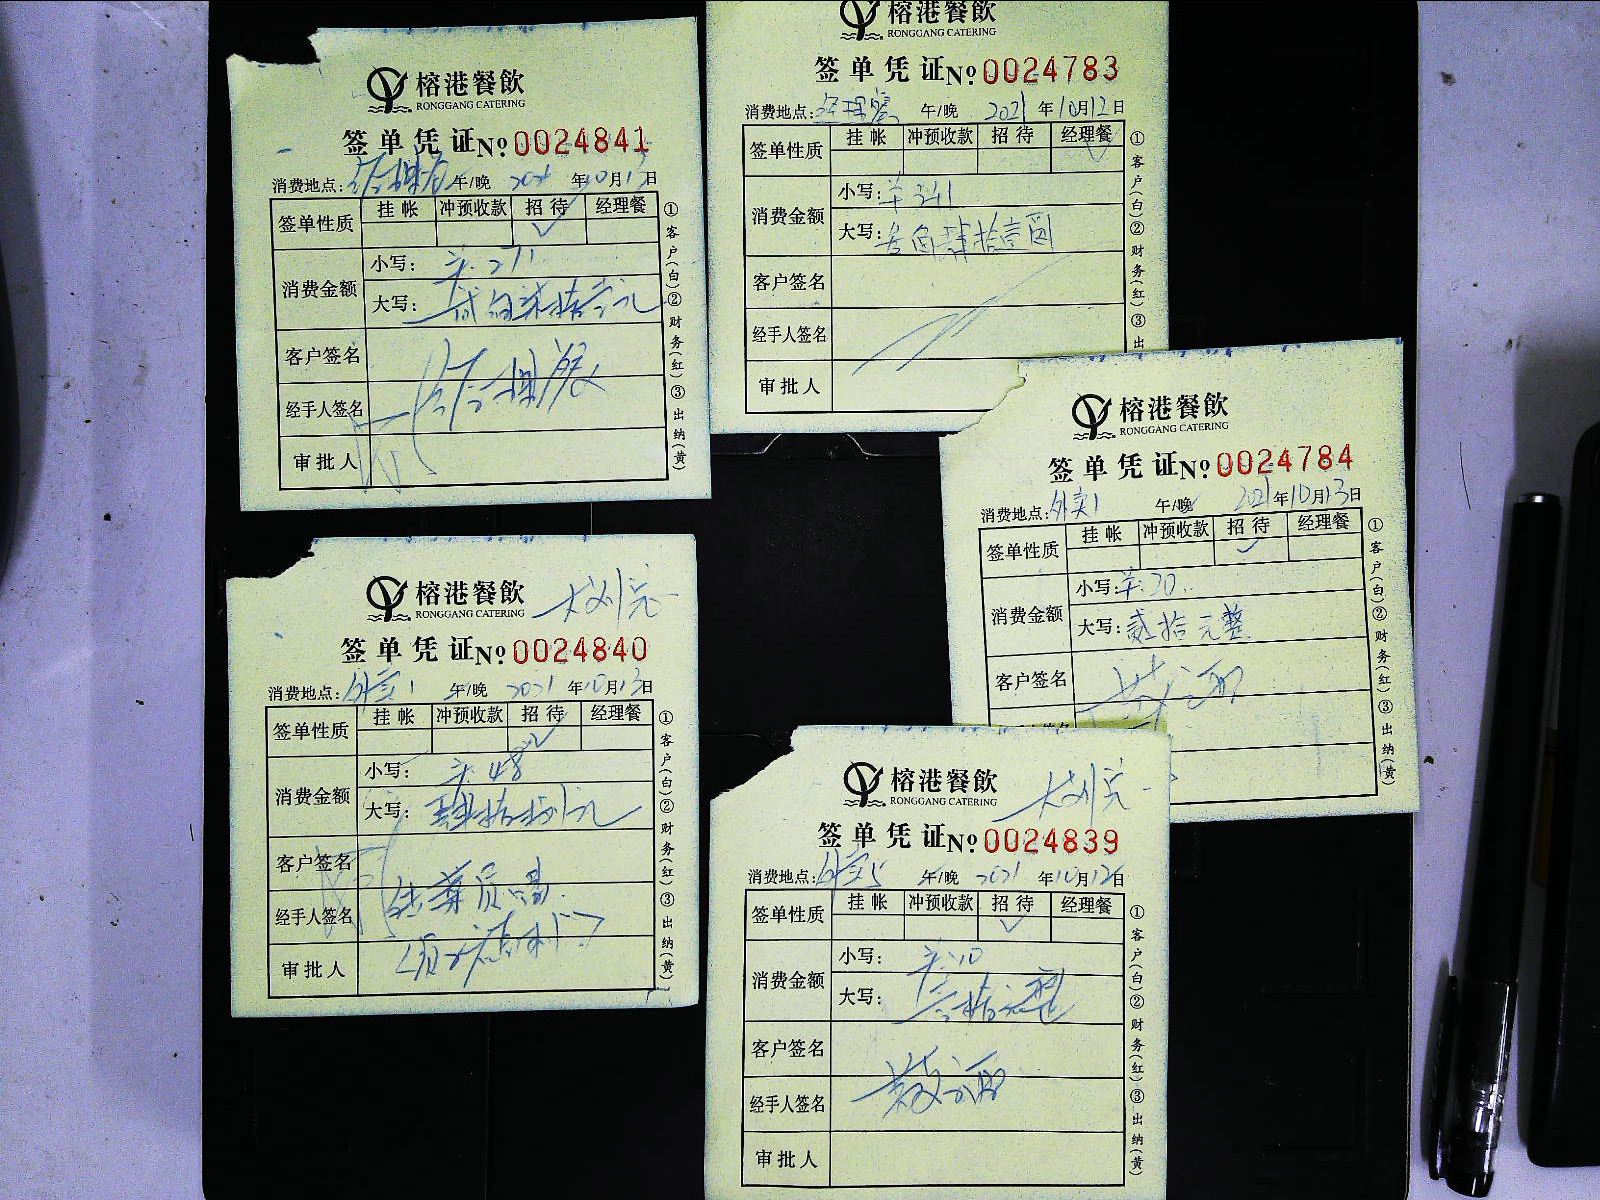 榕港餐飲
RONGGANG CATERING
签单凭证№ 0024841
消费地点: 午/晚 2021年10月13日
签单性质 挂帐 冲预收款 招待 经理餐
消费金额
小写: 羊271
大写: 贰佰柒拾壹元
客户签名
经手人签名
审批人
①客户(白)②财务(红)③出纳(黄)
榕港餐飲
RONGGANG CATERING
签单凭证№ 0024783
消费地点: 经理餐 午/晚 2021年10月12日
签单性质 挂帐 冲预收款 招待 经理餐
消费金额
小写: 羊341
大写: 叁佰肆拾壹圆
客户签名
经手人签名
审批人
①客户(白)②财务(红)③出
榕港餐飲
RONGGANG CATERING
签单凭证№ 0024784
消费地点: 外卖1 午/晚 2021年10月13日
签单性质 挂帐 冲预收款 招待 经理餐
消费金额
小写: 羊20
大写: 贰拾元整
客户签名
①客户(白)②财务(红)③出纳(黄)
榕港餐飲
RONGGANG CATERING
签单凭证№ 0024840
消费地点: 外卖1 午/晚 2021年10月13日
签单性质 挂帐 冲预收款 招待 经理餐
消费金额
小写: 羊48
大写: 肆拾捌元
客户签名
经手人签名
审批人
①客户(白)②财务(红)③出纳(黄)
榕港餐飲
RONGGANG CATERING
签单凭证№ 0024839
消费地点: 外卖5 午/晚 2021年10月12日
签单性质 挂帐 冲预收款 招待 经理餐
消费金额
小写: 羊10
大写: 壹拾元整
客户签名
经手人签名
审批人
①客户(白)②财务(红)③出纳(黄)